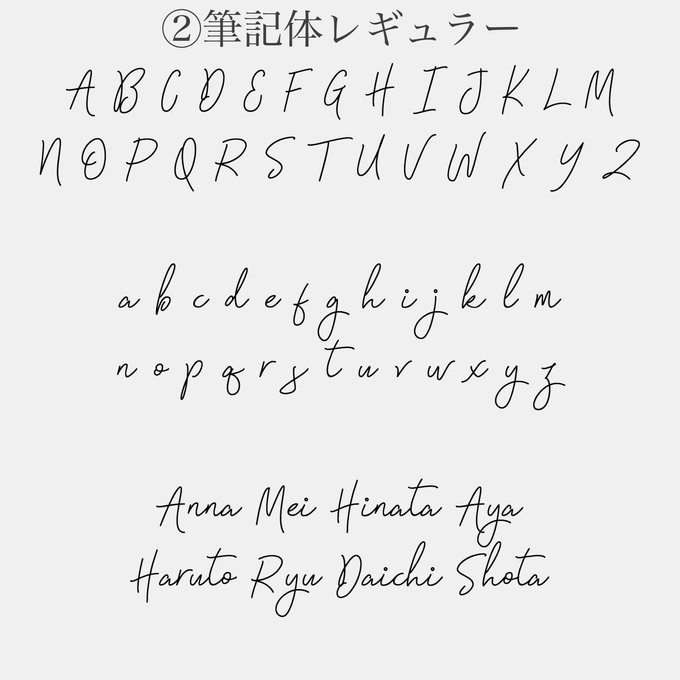 ②筆記体レギュラー
A B C D E F G H I J K L M
N O P Q R S T U V W X Y Z
a b c d e f g h i j k l m
n o p q r s t u v w x y z
Anna Mei Hinata Aya
Haruto Ryu Daichi Shota